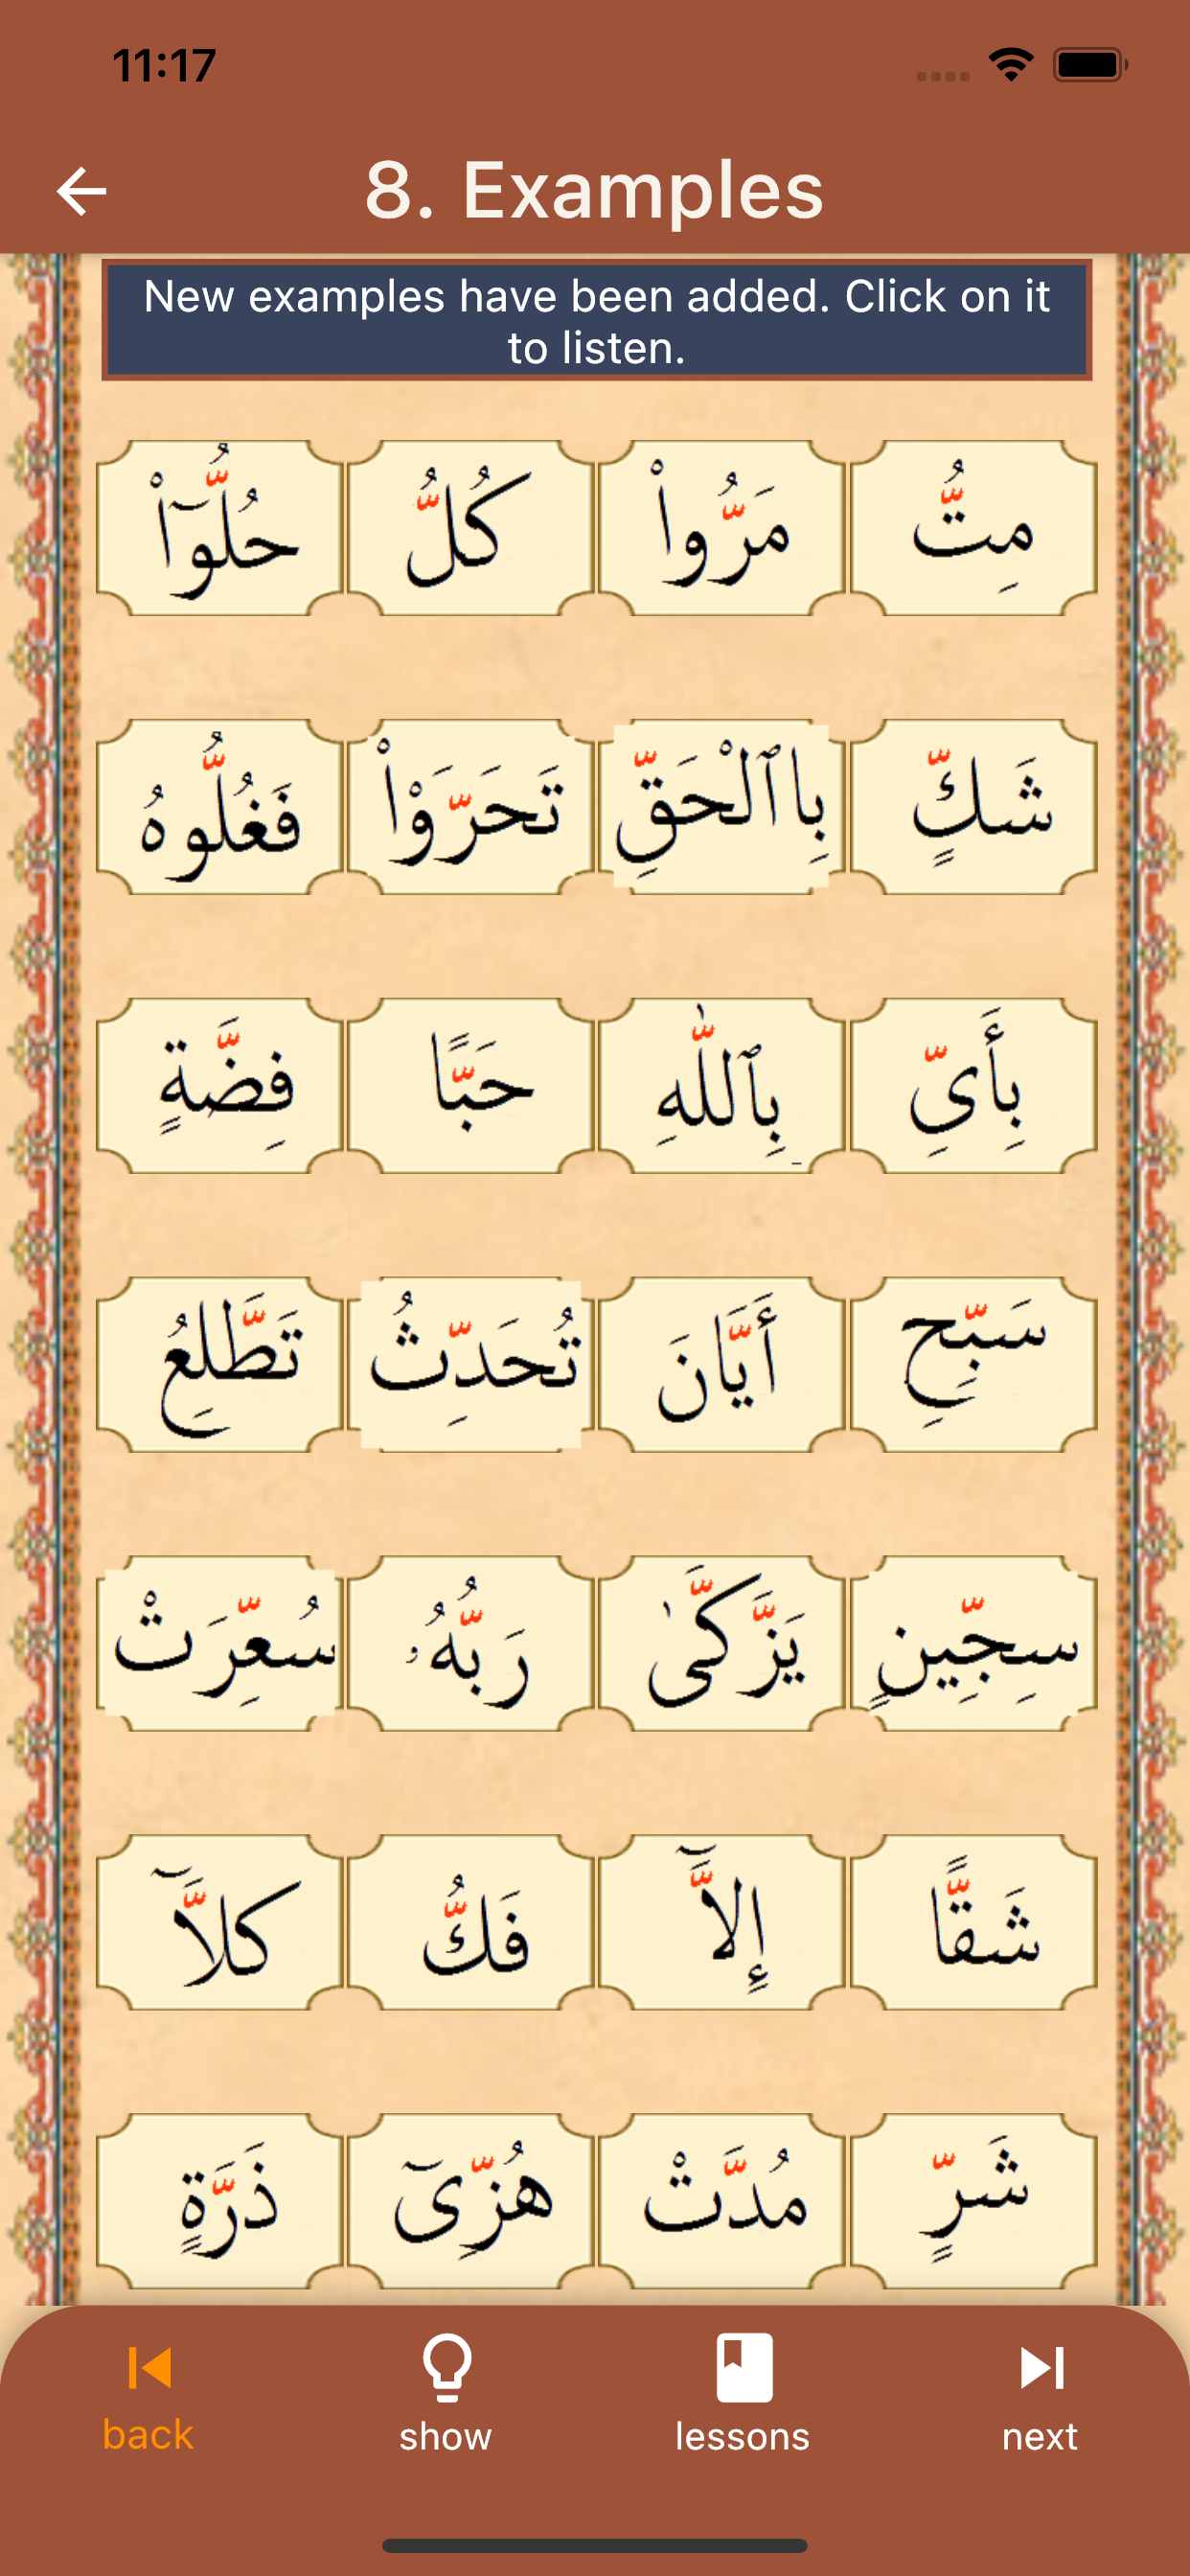 11:17
8. Examples
New examples have been added. Click on it
to listen.
مِتُّ مَرُّواْ كُلُّ حُلُّوٓاْ
شَكٍّ بِاٱلْحَقِّ تَحَرَّوْاْ فَغُلُّوهُ
بِأَىِّ بِٱللَّهِ حَبًّا فِضَّةٍ
سَبِّحِ أَيَّانَ تُحَدِّثُ تَطَّلِعُ
سِجِّينٍ يَزَّكَّىٰ رَبُّهُۥ سُعِّرَتْ
شَقًّا إِلَّآ فَكُّ كَلَّآ
شَرٍّ مُدَّتْ هُزِّىٓ ذَرَّةٍ
back show lessons next